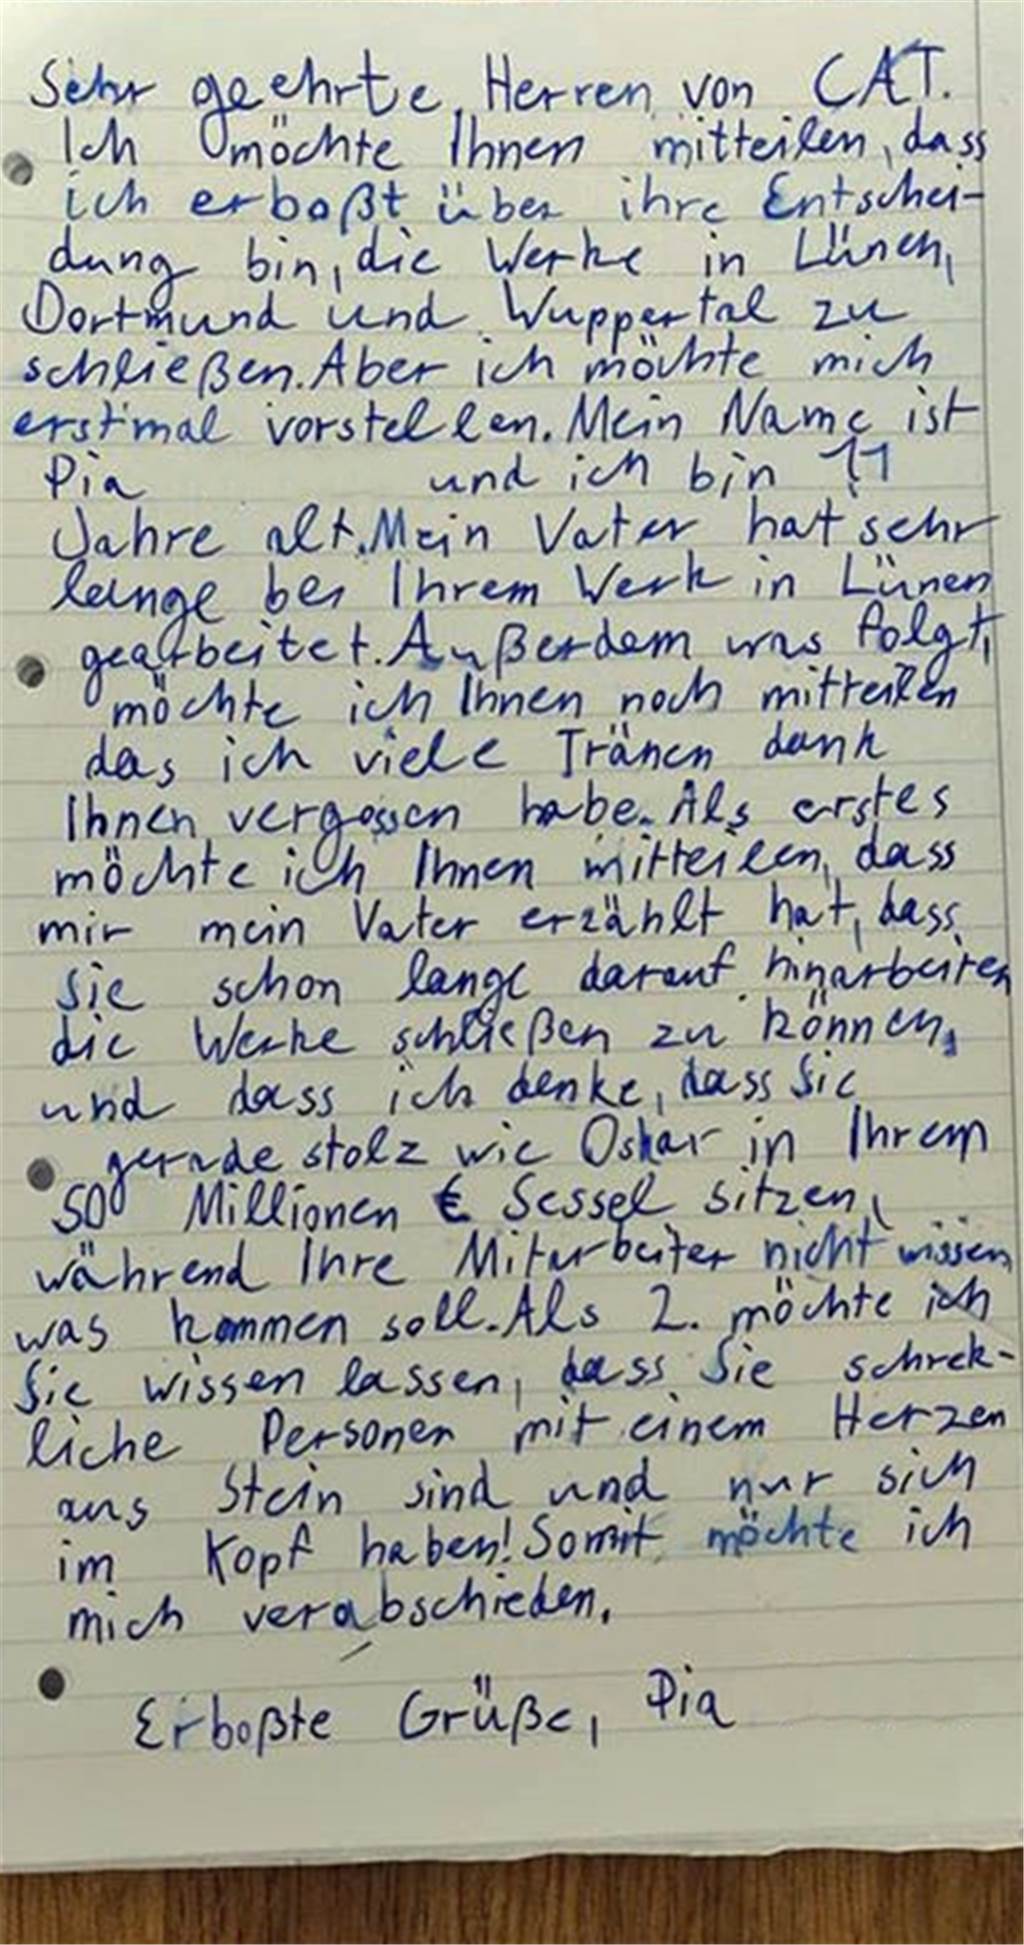 Sehr geehrte Herren von CAT.
Ich möchte Ihnen mitteilen, dass
ich erboßt über ihre Entschei-
dung bin, die Werke in Lünen,
Dortmund und Wuppertal zu
schließen. Aber ich möchte mich
erstmal vorstellen. Mein Name ist
Pia und ich bin 11
Jahre alt. Mein Vater hat sehr
lange bei Ihrem Werk in Lünen
gearbeitet. Außerdem was folgt,
möchte ich Ihnen noch mitteilen
das ich viele Tränen dank
Ihnen vergossen habe. Als erstes
möchte ich Ihnen mitteilen, dass
mir mein Vater erzählt hat, dass
Sie schon lange darauf hinarbeiten
die Werke schließen zu können,
und dass ich denke, dass Sie
gerade stolz wie Oskar in Ihrem
500 Millionen € Sessel sitzen,
während Ihre Mitarbeiter nicht wissen,
was kommen soll. Als 2. möchte ich
Sie wissen lassen, dass Sie schrek-
liche Personen mit einem Herzen
aus Stein sind und nur sich
im Kopf haben! Somit möchte ich
mich verabschieden.
Erboßte Grüße, Pia